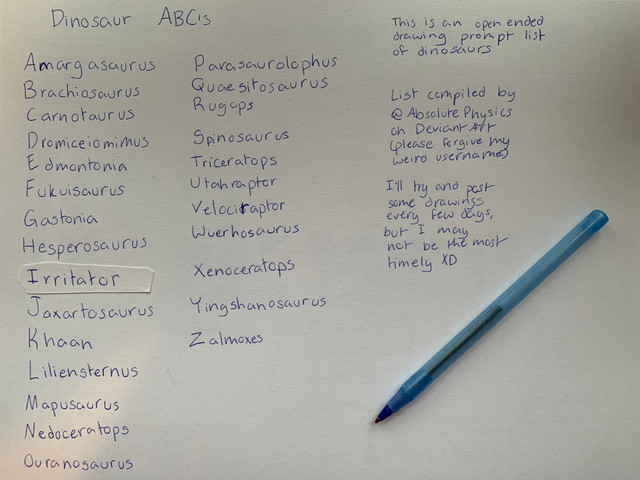 Dinosaur ABC's
Amargasaurus
Brachiosaurus
Carnotaurus
Dromiceiomimus
Edmontonia
Fukuisaurus
Gastonia
Hesperosaurus
Irritator
Jaxartosaurus
Khaan
Liliensternus
Mapusaurus
Nedoceratops
Ouranosaurus
Parasaurolophus
Quaesitosaurus
Rugops
Spinosaurus
Triceratops
Utahraptor
Velociraptor
Wuerhosaurus
Xenoceratops
Yingshanosaurus
Zalmoxes
This is an open ended
drawing prompt list
of dinosaurs
List compiled by
@AbsolutePhysics
on DeviantArt
(please forgive my
weird username)
I'll try and post
some drawings
every few days,
but I may
not be the most
timely XD